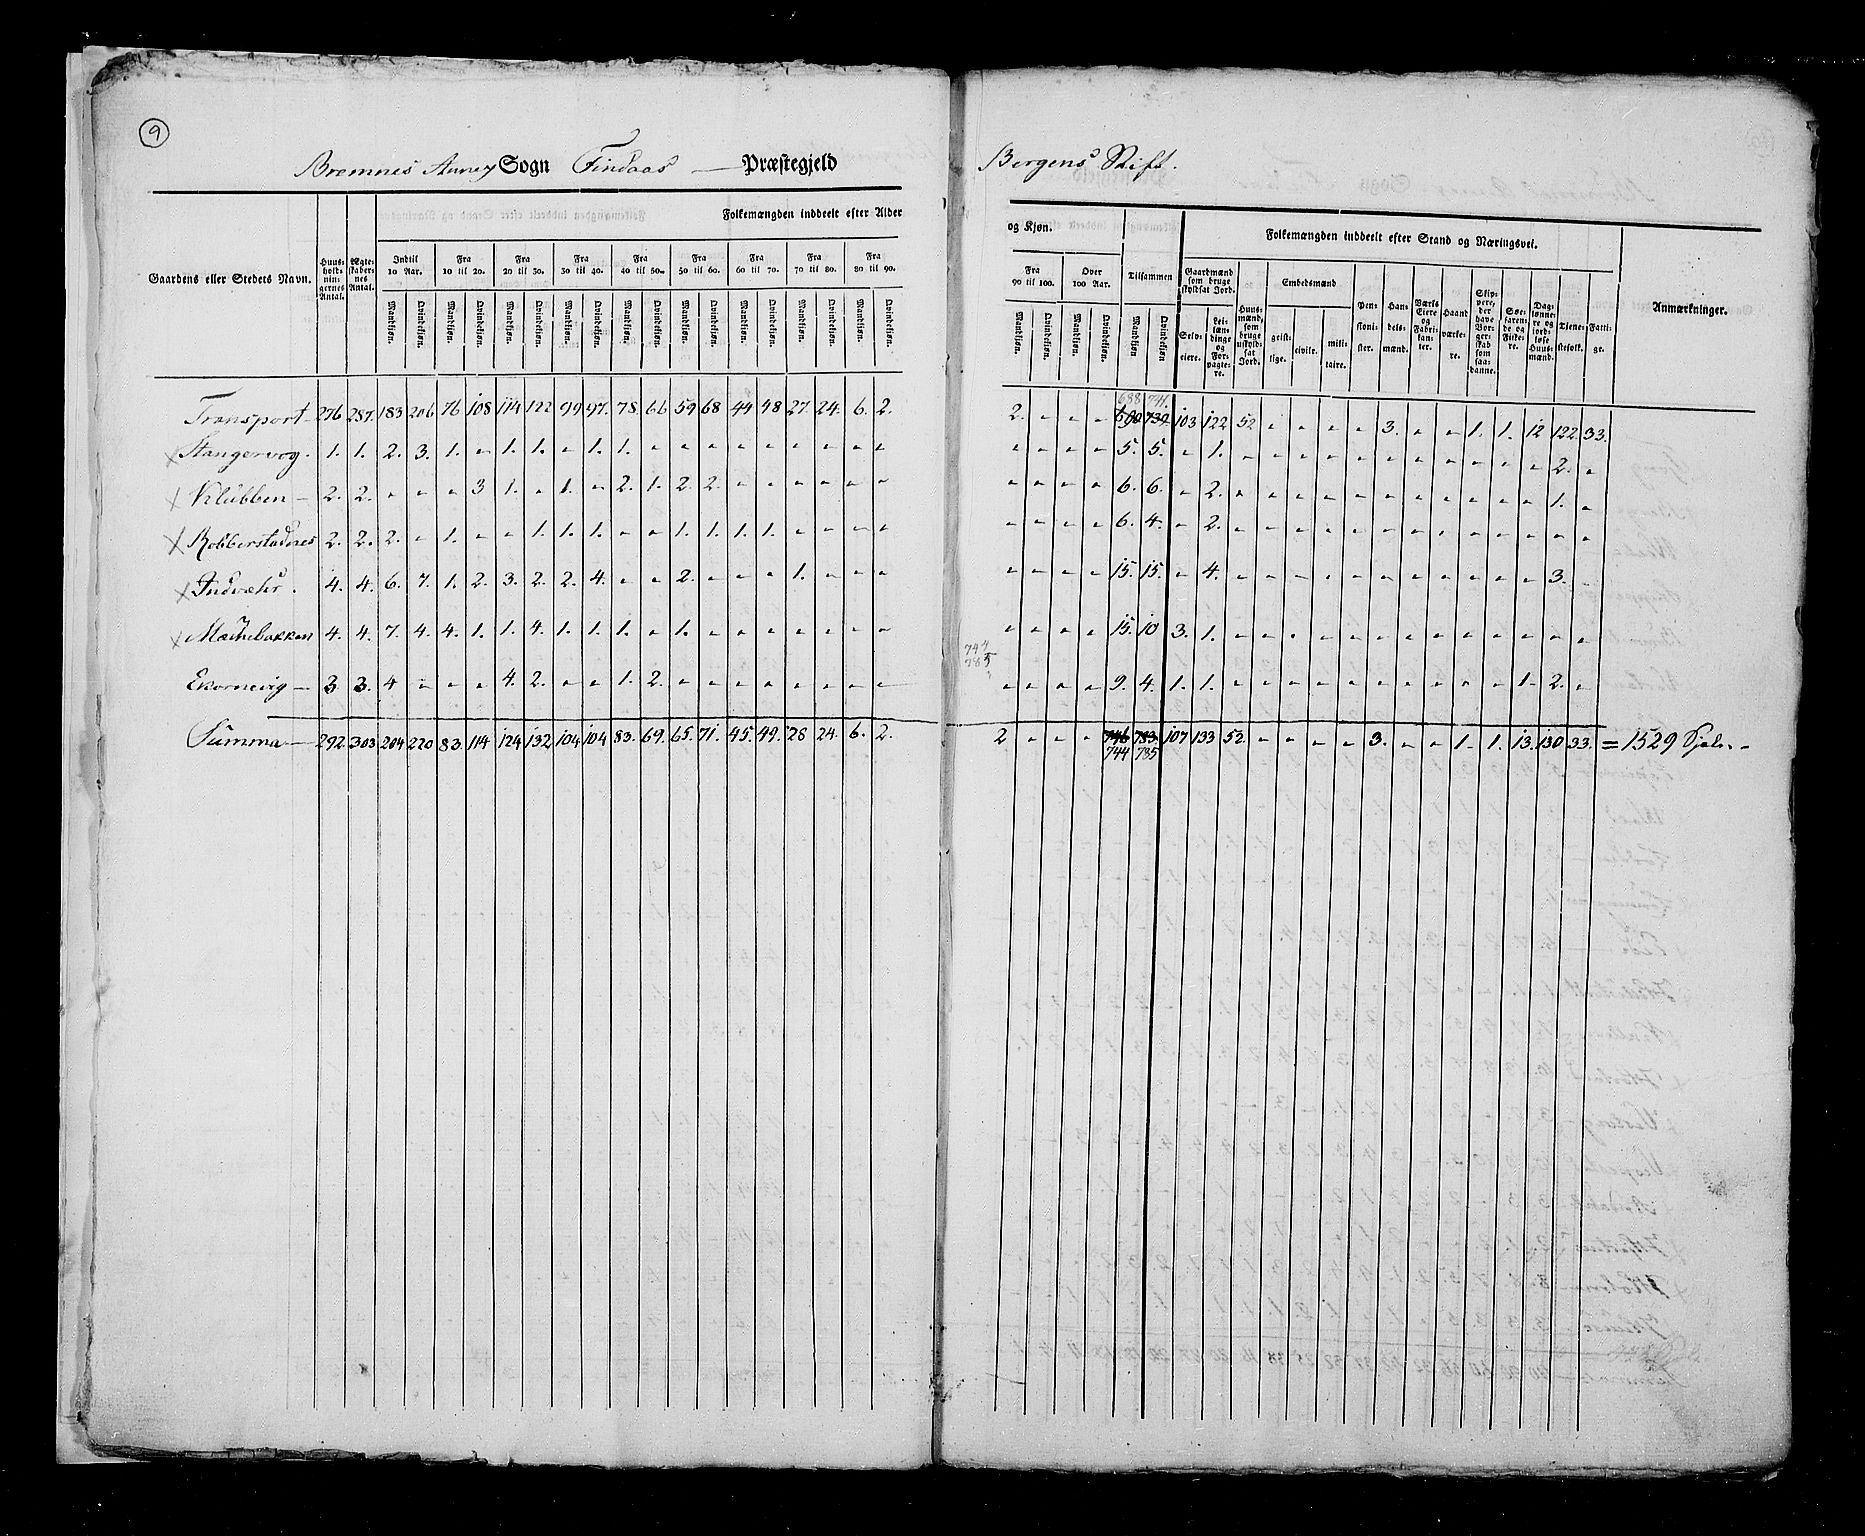 9
Bremnes Annex Sogn Findaas — Præstegjeld Bergens Stift.
Gaardens eller Stedets Navn. Huusholdningernes Antal. Ægteskabernes Antal. Folkemængden inddeelt efter Alder og Kjøn. Folkemængden inddeelt efter Stand og Næringsvei. Anmærkninger.
Indtil 10 Aar. Fra 10 til 20. Fra 20 til 30. Fra 30 til 40. Fra 40 til 50. Fra 50 til 60. Fra 60 til 70. Fra 70 til 80. Fra 80 til 90. Fra 90 til 100. Over 100 Aar. Tilsammen Gaardmænd som bruge skyldsat Jord. Huusmænd, som bruge uskyldsat Jord. Embedsmænd Pensionister. Handelsmænd. Værks Eiere og Fabrikanter. Haandværkere. Skippere, der have Borgerskab som saadanne. Søefarende og Fiskere. Daglønnere og jordløse Huusmænd. Tjenestefolk. Fattige.
Mandkjøn. Qvindekjøn. Mandkjøn. Qvindekjøn. Mandkjøn. Qvindekjøn. Mandkjøn. Qvindekjøn. Mandkjøn. Qvindekjøn. Mandkjøn. Qvindekjøn. Mandkjøn. Qvindekjøn. Mandkjøn. Qvindekjøn. Mandkjøn. Qvindekjøn. Mandkjøn. Qvindekjøn. Mandkjøn. Qvindekjøn. Mandkjøn Qvindekjøn Selveiere. Leilændinge og Forpagtere. geistlige. civile. militaire.
688 741.
Transport 276 287. 183 206. 76 108 114 122 99 97. 78. 66 59 68 44 48 27. 24. 6. 2. 2. " " " 690 739. 103 122 52 " " " " 3. " " 1. 1. 12 122. 33.
Stangervog. 1. 1. 2. 3. 1. " 1. 1. " 1. 1. " " " " " " " " " " " " " 5. 5. " 1. " " " " " " " " " " " 2. "
Klubben — 2. 2. " " " 3 1. " 1. " 2. 1. 2. 2. " " " " " " " " " " 6. 6. " 2. " " " " " " " " " " " 1. "
Robberstadnes 2. 2. 2. " 1. " " 1. 1. 1. " " 1. 1. 1. 1. " " " " " " " " 6. 4. " 2. " " " " " " " " " " " " "
Indvæhr. 4. 4. 6. 7. 1. 2. 3. 2. 2. 4. " " 2. " " " 1. " " " " " " " 15. 15. " 4. " " " " " " " " " " " 3. "
Mæhlebakken 4. 4. 7. 4. 4. 1. 1. 4. 1. 1. 1. " 1. " " " " " " " " " " " 15. 10 3. 1. " " " " " " " " " " " " "
744
785
Ekornevig — 3. 3. 4 " " " 4. 2. " " 1. 2. " " " " " " " " " " " " 9. 4. 1. 1. " " " " " " " " " " 1. 2. "
Summa — 292. 303 204 220 83. 114 124 132 104 104 83. 69. 65. 71. 45. 49. 28 24. 6. 2. 2 " " " 746 783. 107 133 52. " " " " 3. " " 1. 1. 13. 130 33. = 1529 Sjæle. -
744 785